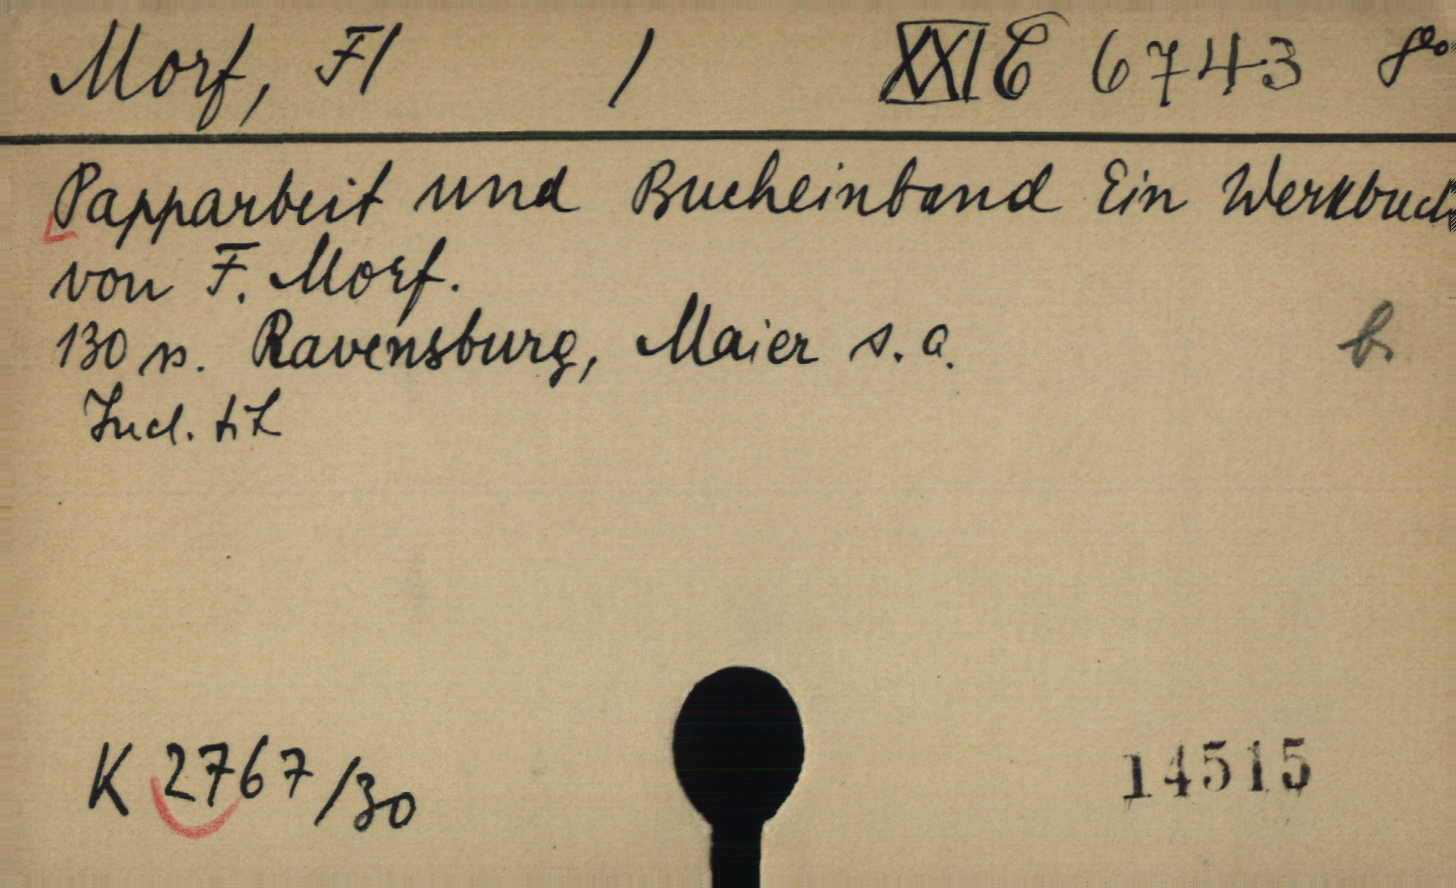 Morf, F/ / XXI E 6743 go
Papparbeit und Bucheinband Ein Werkbuch
von F. Morf.
130 p. Ravensburg, Maier s. a.
b.
Incl. tit
K 2767/30
14515